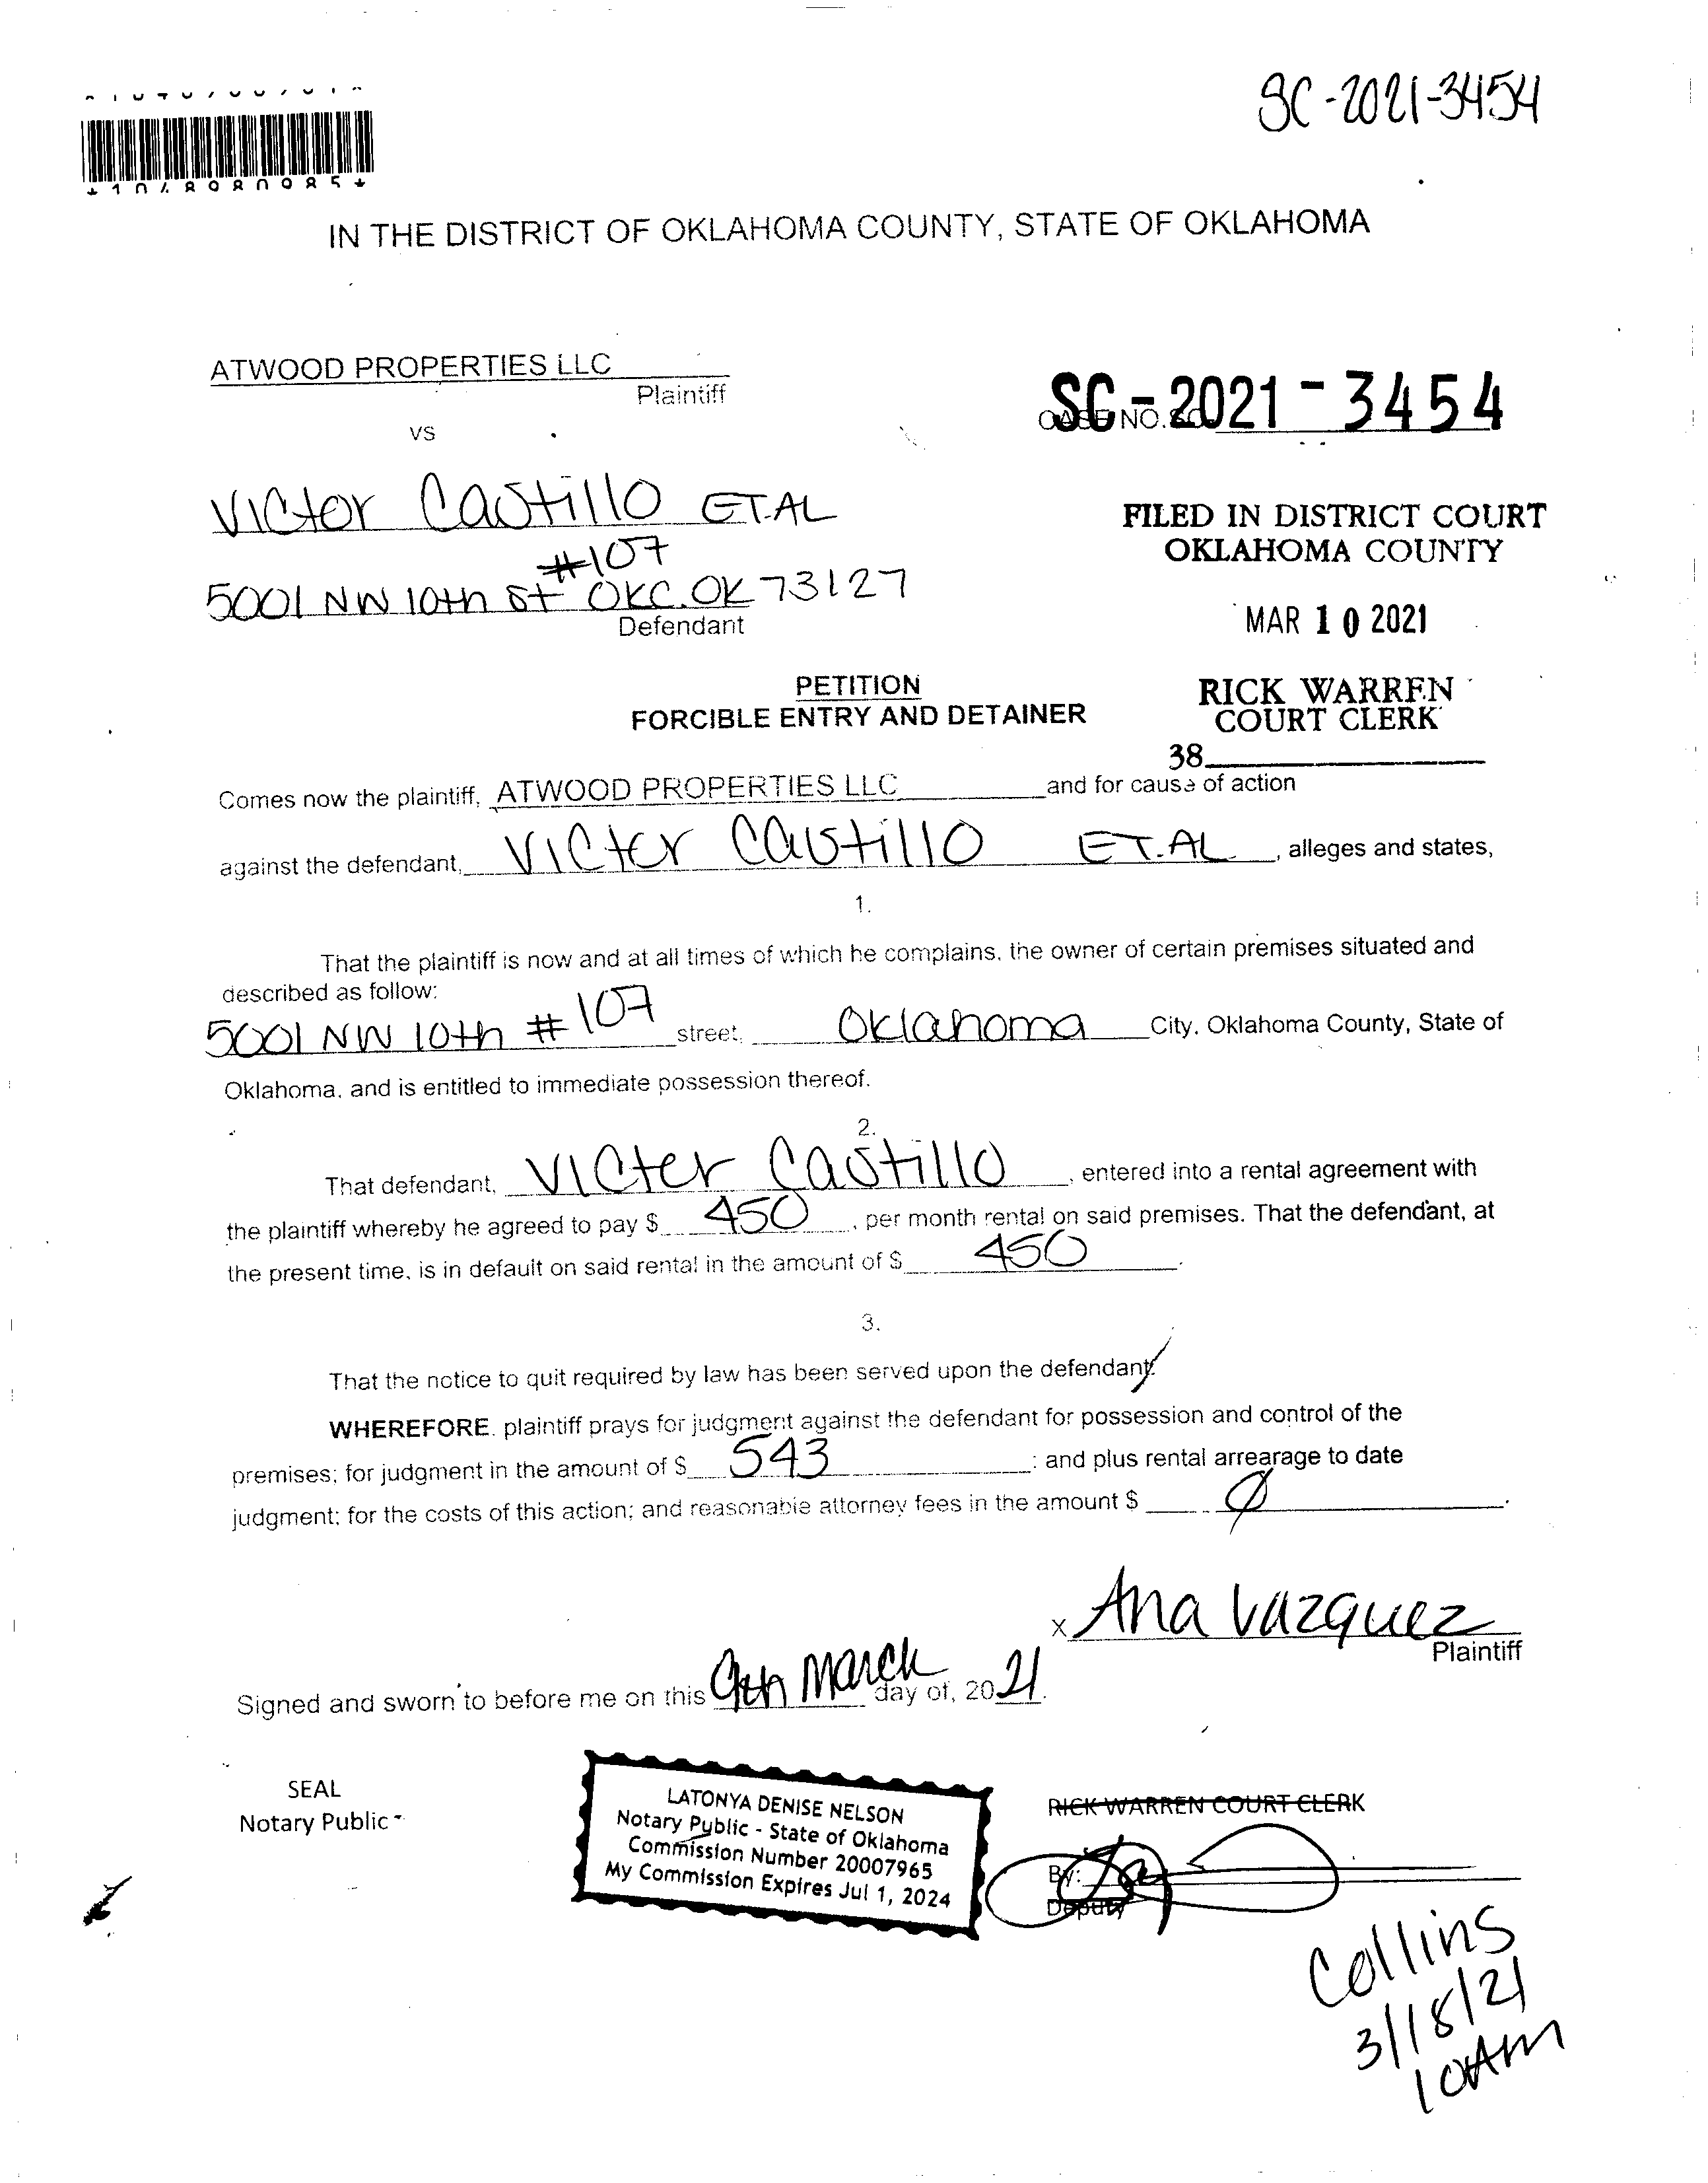 SC-2021-3454
IN THE DISTRICT OF OKLAHOMA COUNTY, STATE OF OKLAHOMA
ATWOOD PROPERTIES LLC
Plaintiff
VS
SC-2021-3454
CASE NO. SC-
Victor Castillo ET.AL
#107
5001 NW 10th St OKC.OK 73127
Defendant
FILED IN DISTRICT COURT
OKLAHOMA COUNTY
MAR 10 2021
RICK WARREN
COURT CLERK
38
PETITION
FORCIBLE ENTRY AND DETAINER
Comes now the plaintiff, ATWOOD PROPERTIES LLC and for cause of action
against the defendant, Victor Castillo ET.AL , alleges and states,
1.
That the plaintiff is now and at all times of which he complains, the owner of certain premises situated and
described as follow:
5001 NW 10th #107 street, Oklahoma City, Oklahoma County, State of
Oklahoma, and is entitled to immediate possession thereof.
2.
That defendant, Victer Castillo , entered into a rental agreement with
the plaintiff whereby he agreed to pay $ 450 , per month rental on said premises. That the defendant, at
the present time, is in default on said rental in the amount of $ 450 .
3.
That the notice to quit required by law has been served upon the defendant.
WHEREFORE, plaintiff prays for judgment against the defendant for possession and control of the
premises; for judgment in the amount of $ 543 ; and plus rental arrearage to date
judgment; for the costs of this action; and reasonable attorney fees in the amount $ Ø .
x Ana Vazquez
Plaintiff
Signed and sworn to before me on this 9th March day of, 2021.
SEAL
Notary Public
LATONYA DENISE NELSON
Notary Public - State of Oklahoma
Commission Number 20007965
My Commission Expires Jul 1, 2024
RICK WARREN COURT CLERK
By:
Deputy
Collins
3/18/21
10AM